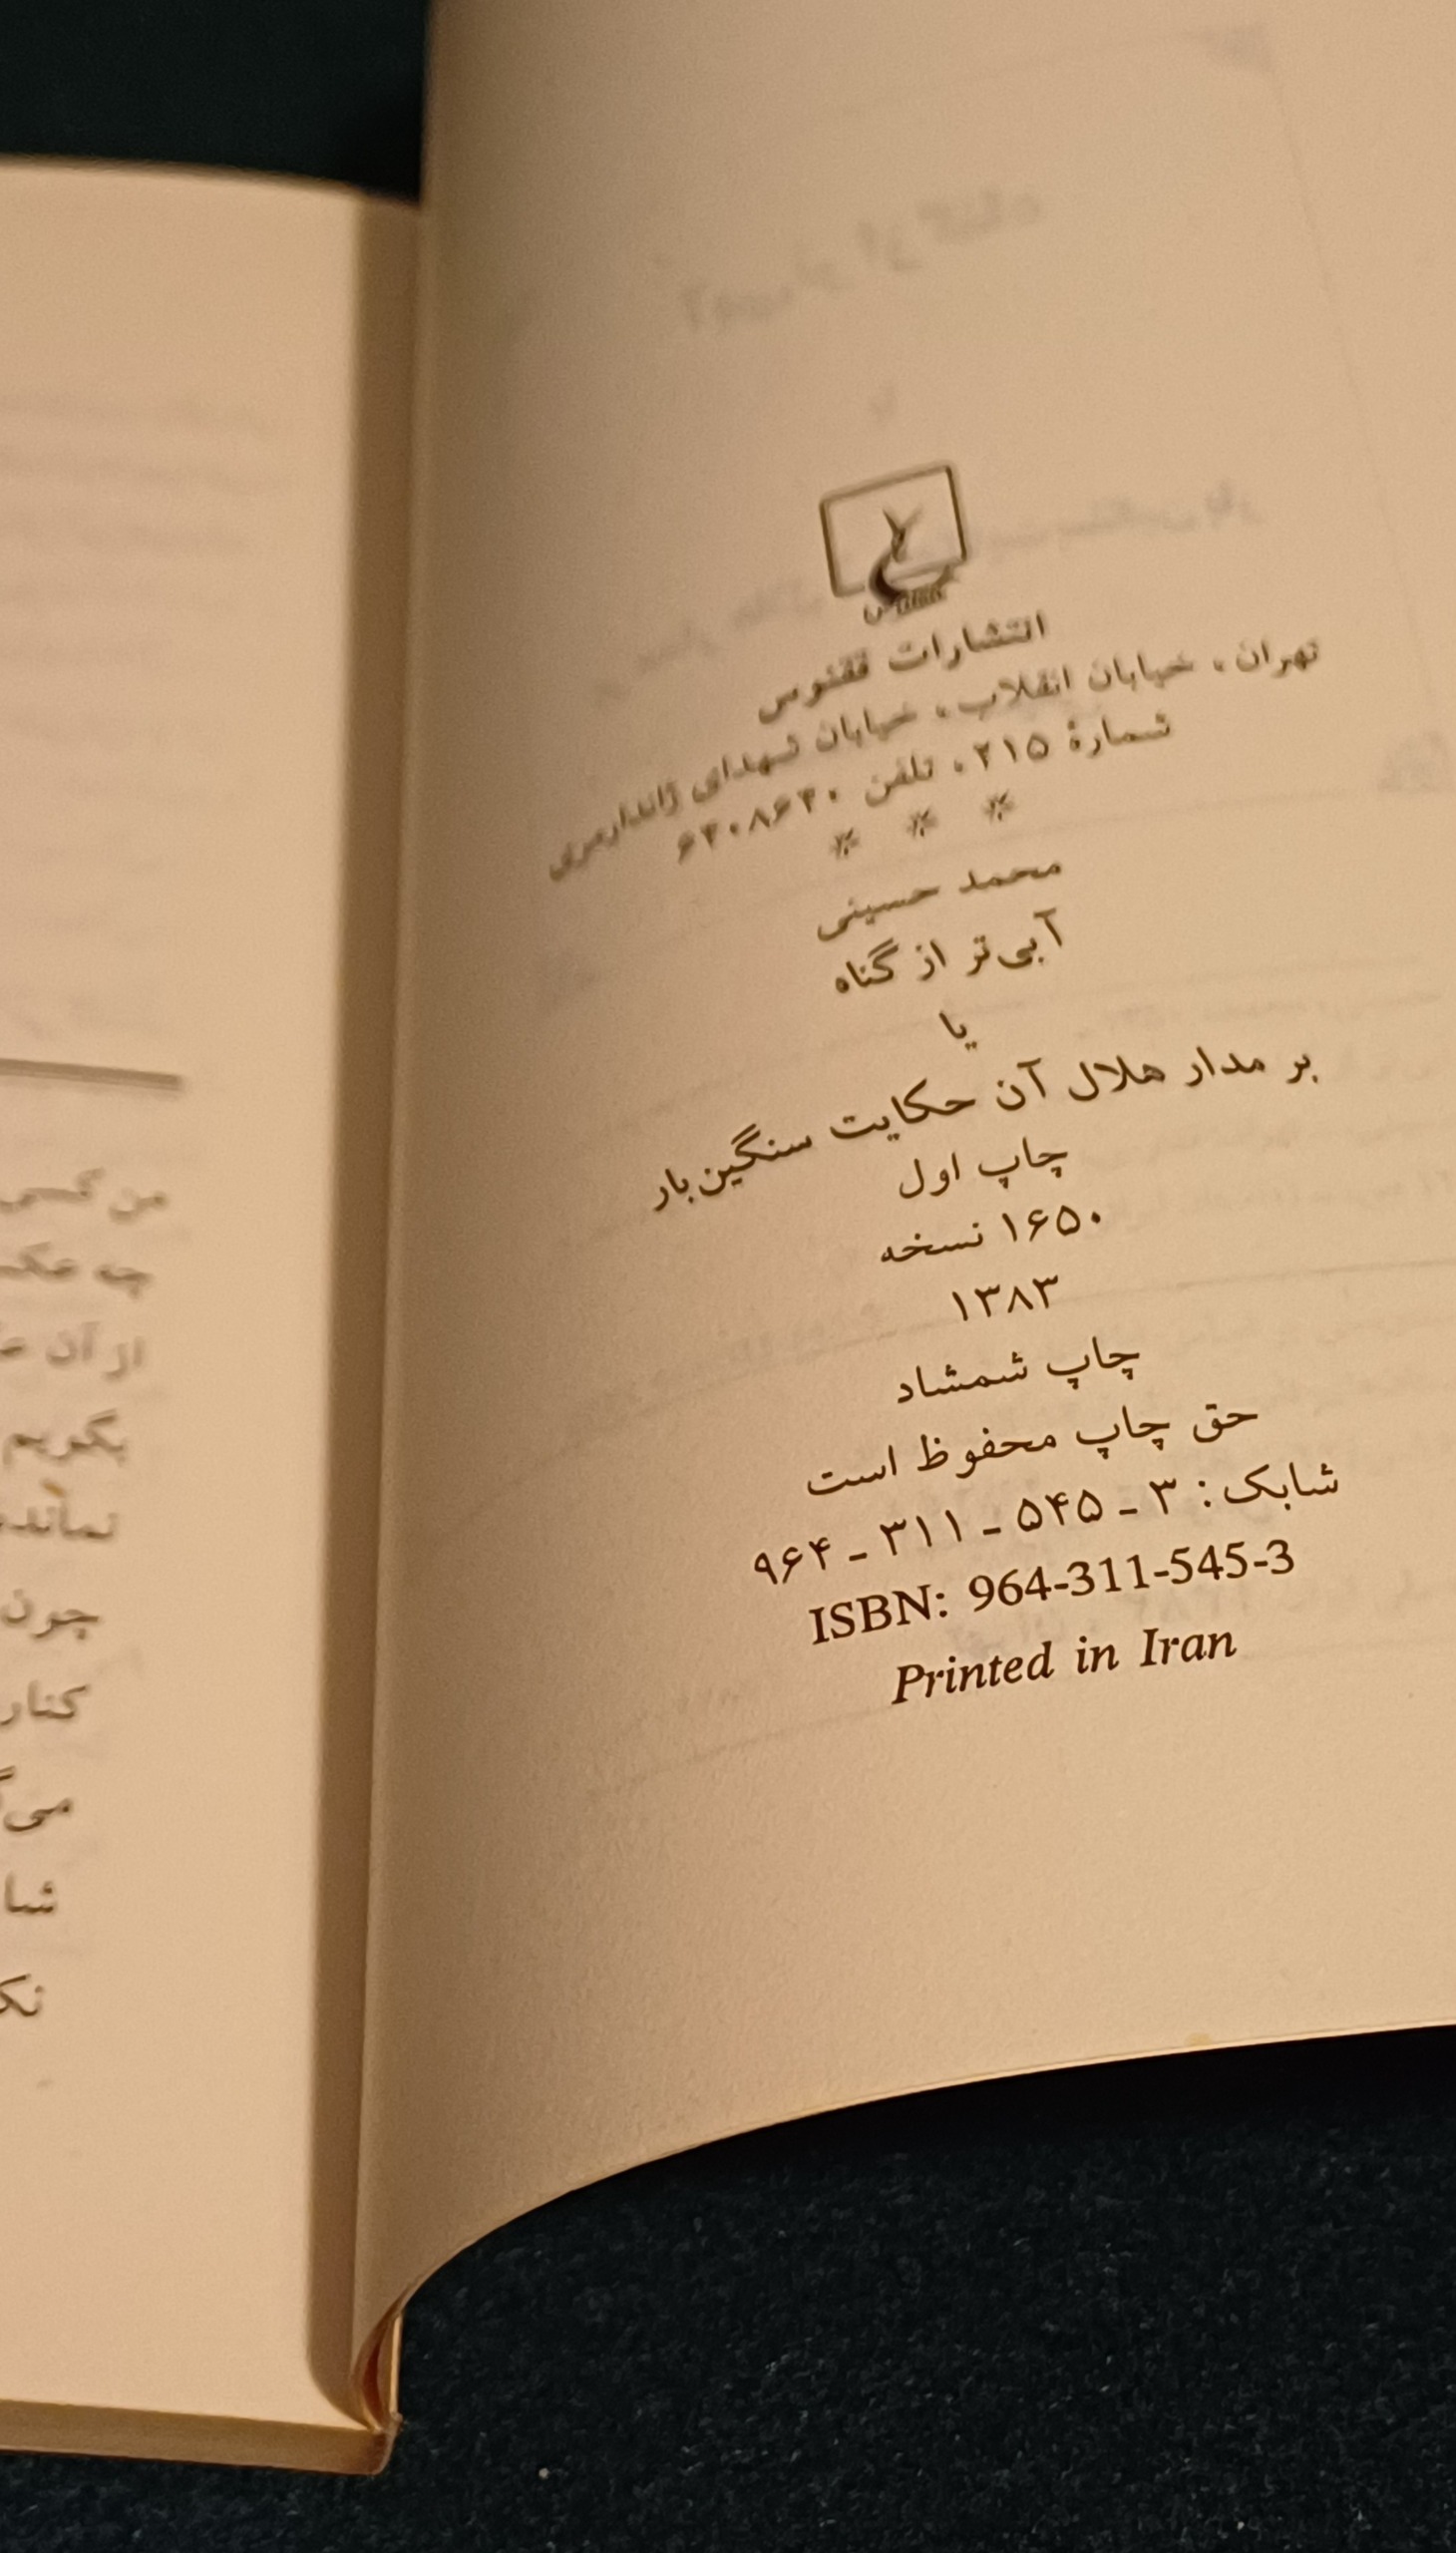 ققنوس
انتشارات ققنوس
تهران، خیابان انقلاب، خیابان شهدای ژاندارمری
شمارهٔ ۲۱۵، تلفن ۶۴۰۸۶۴۰
* * *
محمد حسینی
آبی‌تر از گناه
یا
بر مدار هلال آن حکایت سنگین‌بار
چاپ اول
۱۶۵۰ نسخه
۱۳۸۳
چاپ شمشاد
حق چاپ محفوظ است
شابک: ۳ ـ ۵۴۵ ـ ۳۱۱ ـ ۹۶۴
ISBN: 964-311-545-3
Printed in Iran
من کسی
چه
از آن
بگویم
چون
کنار